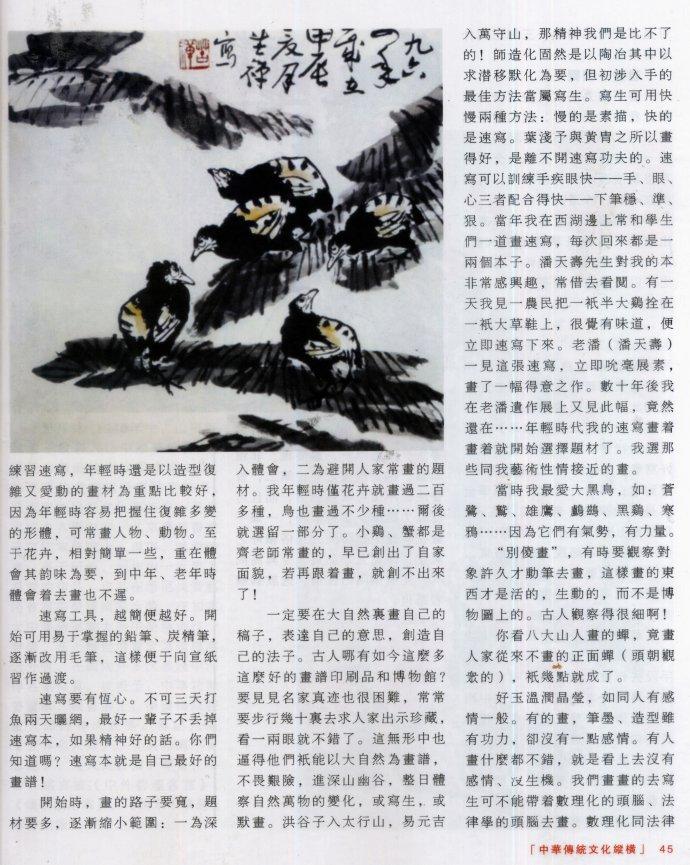 九六
甲辰
苦禪
寫
練習速寫，年輕時還是以造型復
雜又愛動的畫材為重點比較好，
因為年輕時容易把握住復雜多變
的形體，可常畫人物、動物。至
于花卉，相對簡單一些，重在體
會其韵味為要，到中年、老年時
體會着去畫也不遲。
速寫工具，越簡便越好。開
始可用易于掌握的鉛筆、炭精筆，
逐漸改用毛筆，這樣便于向宣紙
習作過渡。
速寫要有恆心。不可三天打
魚兩天曬網，最好一輩子不丟掉
速寫本，如果精神好的話。你們
知道嗎？速寫本就是自己最好的
畫譜！
開始時，畫的路子要寬，題
材要多，逐漸縮小範圍：一為深
入體會，二為避開人家常畫的題
材。我年輕時僅花卉就畫過二百
多種，鳥也畫過不少種……爾後
就選留一部分了。小鷄、蟹都是
齊老師常畫的，早已創出了自家
面貌，若再跟着畫，就創不出來
了！
一定要在大自然裏畫自己的
稿子，表達自己的意思，創造自
己的法子。古人哪有如今這麼多
這麼好的畫譜印刷品和博物館？
要見見名家真迹也很困難，常常
要步行幾十裏去求人家出示珍藏，
看一兩眼就不錯了。這無形中也
逼得他們衹能以大自然為畫譜，
不畏艱險，進深山幽谷，整日體
察自然萬物的變化，或寫生，或
默畫。洪谷子入太行山，易元吉
入萬守山，那精神我們是比不了
的！師造化固然是以陶冶其中以
求潛移默化為要，但初涉入手的
最佳方法當屬寫生。寫生可用快
慢兩種方法：慢的是素描，快的
是速寫。葉淺予與黃冑之所以畫
得好，是離不開速寫功夫的。速
寫可以訓練手疾眼快——手、眼、
心三者配合得快——下筆穩、準、
狠。當年我在西湖邊上常和學生
們一道畫速寫，每次回來都是一
兩個本子。潘天壽先生對我的本
非常感興趣，常借去看閱。有一
天我見一農民把一衹半大鷄拴在
一衹大草鞋上，很覺有味道，便
立即速寫下來。老潘（潘天壽）
一見這張速寫，立即吮毫展素，
畫了一幅得意之作。數十年後我
在老潘遺作展上又見此幅，竟然
還在……年輕時代我的速寫畫着
畫着就開始選擇題材了。我選那
些同我藝術性情接近的畫。
當時我最愛大黑鳥，如：蒼
鷺、鷲、雄鷹、鸕鷀、黑鷄、寒
鴉……因為它們有氣勢，有力量。
“別傻畫”，有時要觀察對
象許久才動筆去畫，這樣畫的東
西才是活的，生動的，而不是博
物圖上的。古人觀察得很細啊！
你看八大山人畫的蟬，竟畫
人家從來不畫的正面蟬（頭朝觀
衆的），衹幾點就成了。
好玉溫潤晶瑩，如同人有感
情一般。有的畫，筆墨、造型雖
有功力，卻沒有一點感情。有人
畫什麼都不錯，就是看上去沒有
感情、沒生機。我們畫畫的去寫
生可不能帶着數理化的頭腦、法
律學的頭腦去畫。數理化同法律
「中華傳統文化縱橫」 45